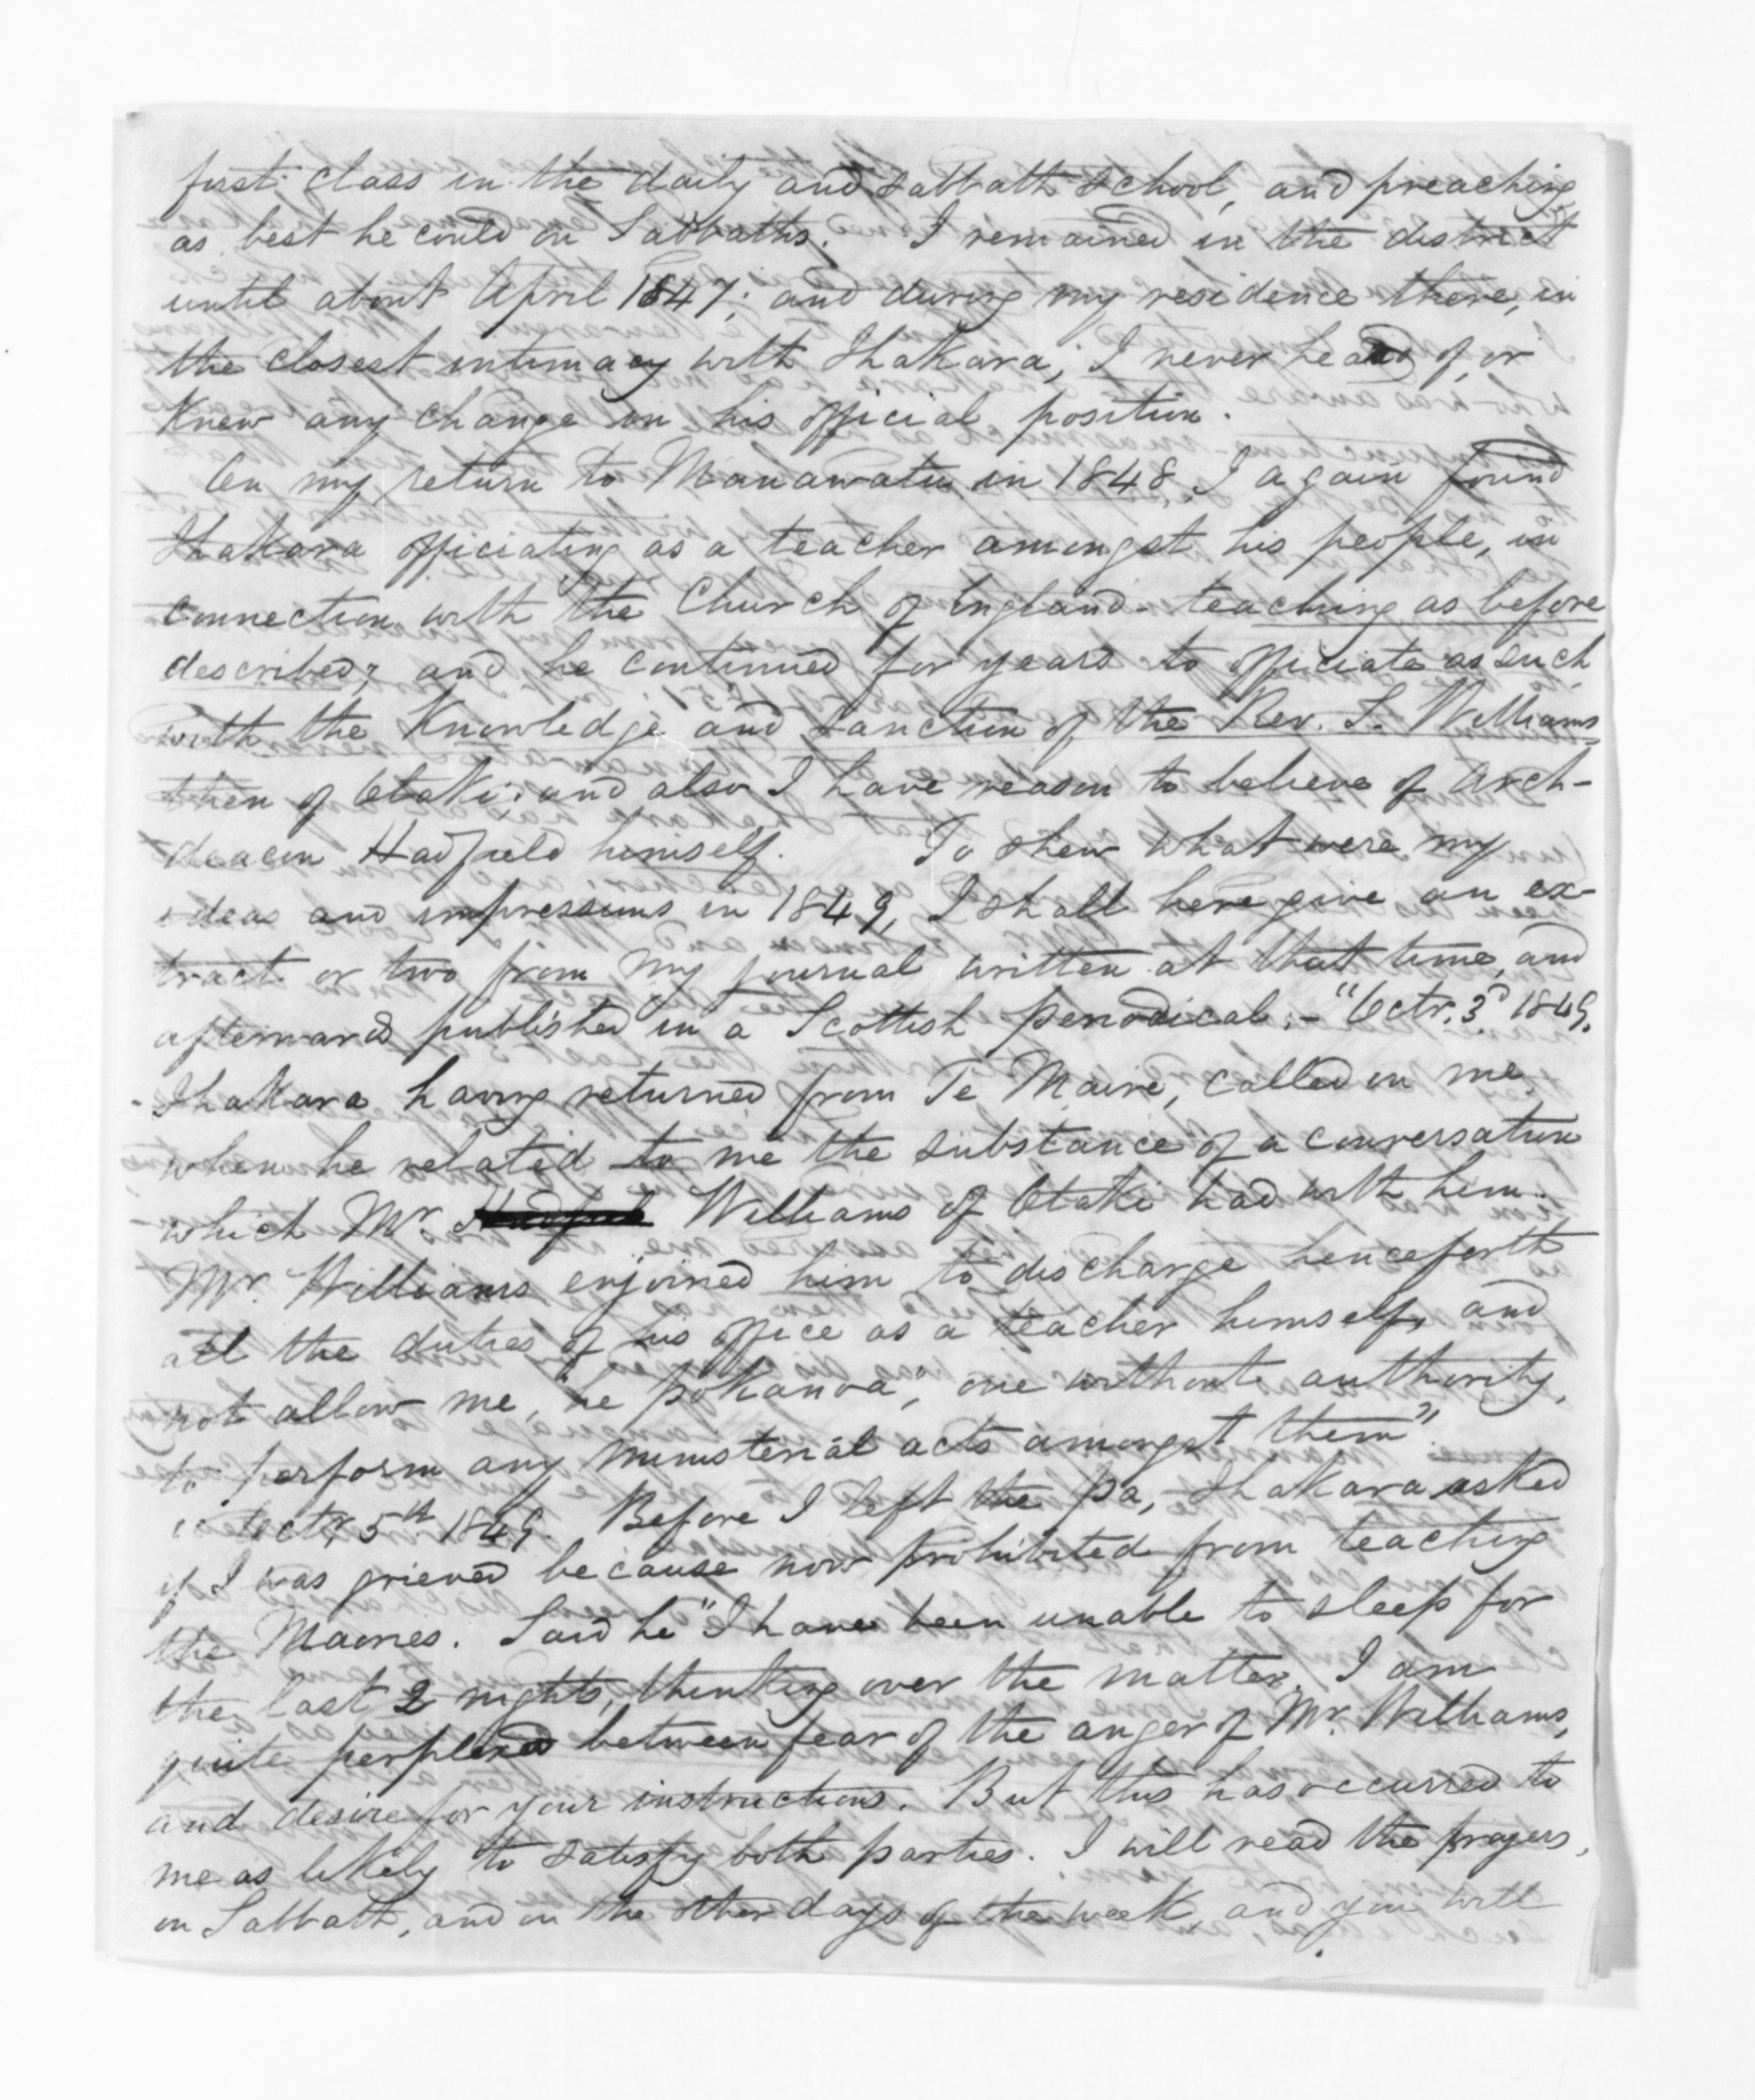 first class in the daily and Sabbath School, and preaching
as best he could on Sabbaths. I remained in the district
until about April 1847; and during my residence there, in
the closest intimacy with Ihakara, I never heard of, or
Knew any change in his official position.
On my return to Manawatu in 1848, I again found
Ihakara officiating as a teacher amongst his people, in
connection with the Church of England - teaching as before
described; and he continued for years to officiate as such
with the Knowledge and sanction of the Rev. S. Williams
then of Otaki; and also I have reason to believe of Arch-
deacon Hadfield himself. To shew what were my
ideas and impressions in 1849, I shall here give an ex-
tract or two from my journal written at that time, and
afterwards published in a Scottish periodical; - "Octr. 3d 1849.
Ihakara having returned from Te Maire, called on me,
when he related to me the substance of a conversation
which Mr. Williams of Otaki had with him.
Mr. Williams enjoined him to discharge henceforth
all the duties of his office as a teacher himself, and
not allow me, "he pokanoa", one without authority,
to perform any ministerial acts amongst them".
"Octr 5th 1849. Before I left the pa, Ihakara asked
if I was grieved because now prohibited from teaching
the Maories. Said he "I have been unable to sleep for
the last 2 nights, thinking over the matter. I am
quite perplexed between fear of the anger of Mr. Williams,
and desire for your instructions. But this has occurred to
me as likely to satisfy both parties. I will read the prayers,
on Sabbath, and on the other days of the week, and you will